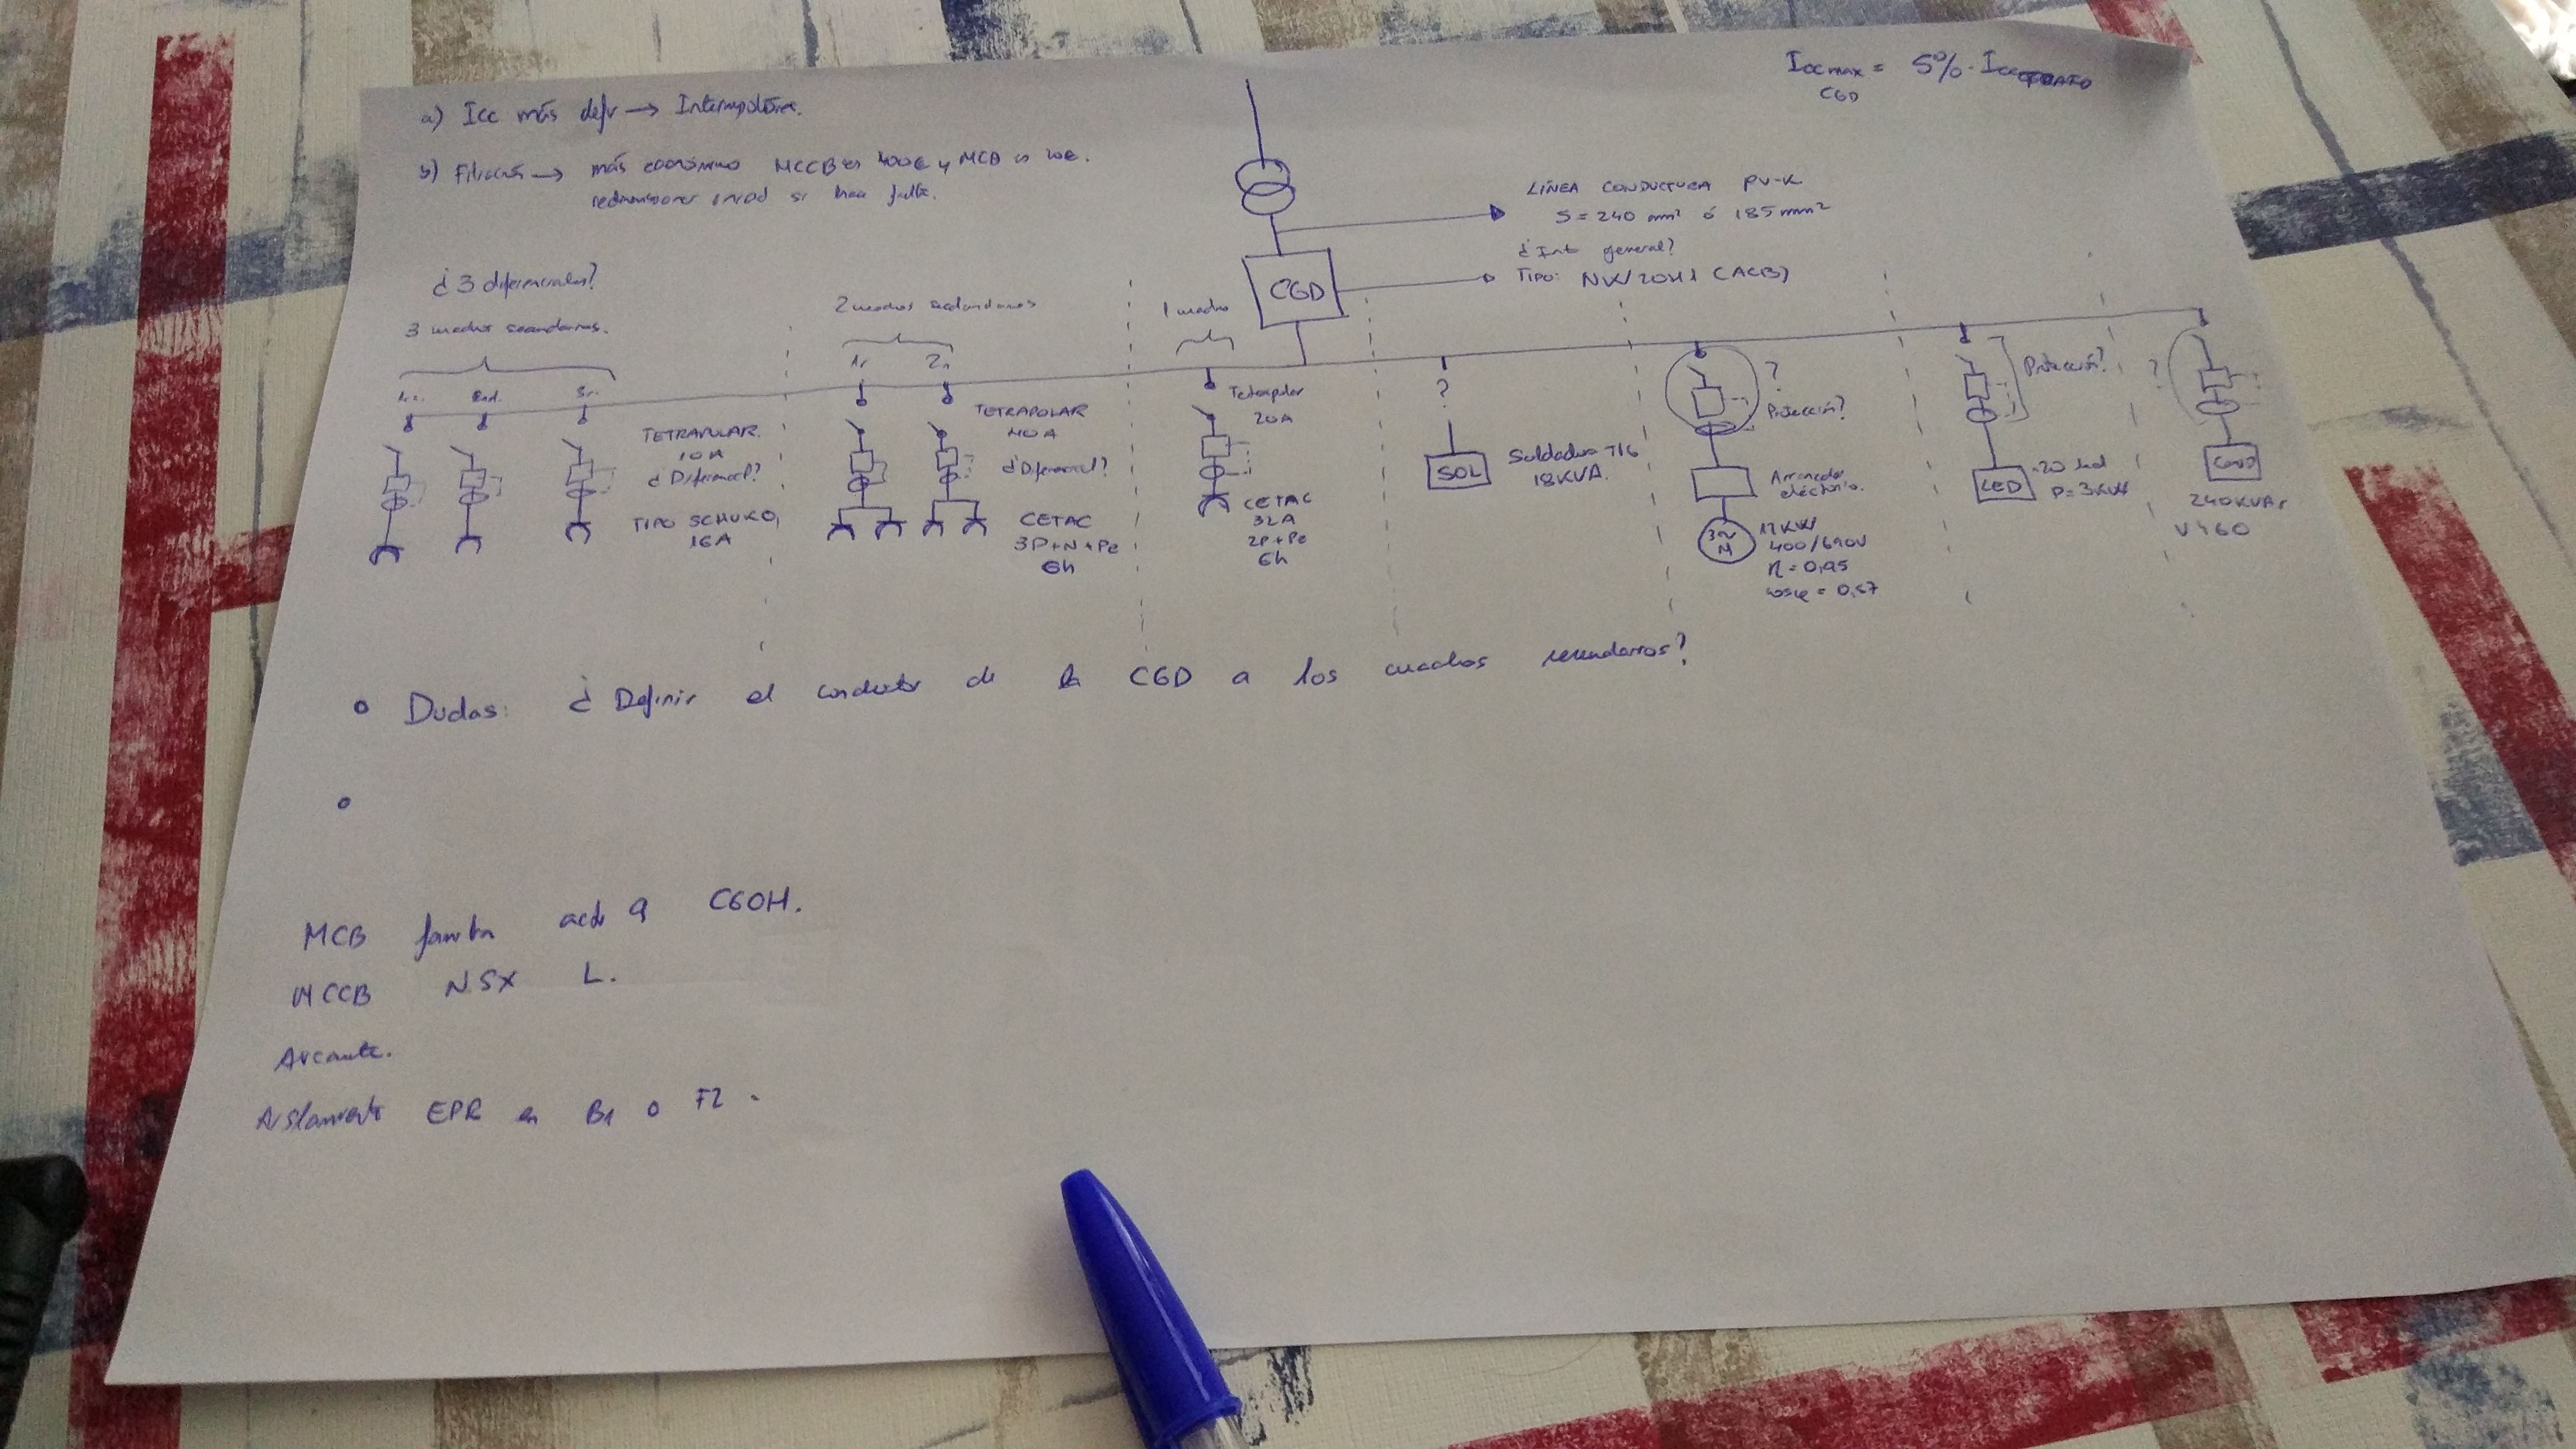 a) Icc más defv → Interrupolar.
b) Filiación → más económico MCCB es 400€ y MCB es 20€.
si hace falta.
Iccmax = 5% · Icc
CGD
LÍNEA CONDUCTORA PV-K
S = 240 mm² ó 185 mm²
¿Int general?
TIPO: NW20H1 (ACB)
CGD
¿3 diferenciales?
3 cuadros secundarios.
1r. 2nd. 3r.
TETRAPOLAR
10A
¿Diferencial?
TIPO SCHUKO,
16A
2 cuadros secundarios
1r 2n
TETRAPOLAR
40A
¿Diferencial?
CETAC
3P+N+Pe
6h
1 cuadro
Tetrapolar
20A
CETAC
32A
2P+Pe
6h
?
SOL
Soldadura TIG
18KVA.
?
Protección?
Arrancador
eléctrónico.
3~
M
400/690V
η = 0,95
cosφ = 0,87
Protección?
LED
20 led
P = 3KW
?
Cond
240KVAr
V460
• Dudas: ¿Definir el conductor de la CGD a los cuadros secundarios?
•
MCB acti 9 C60H.
MCCB NSX L.
Aislamiento EPR en B1 o F2.